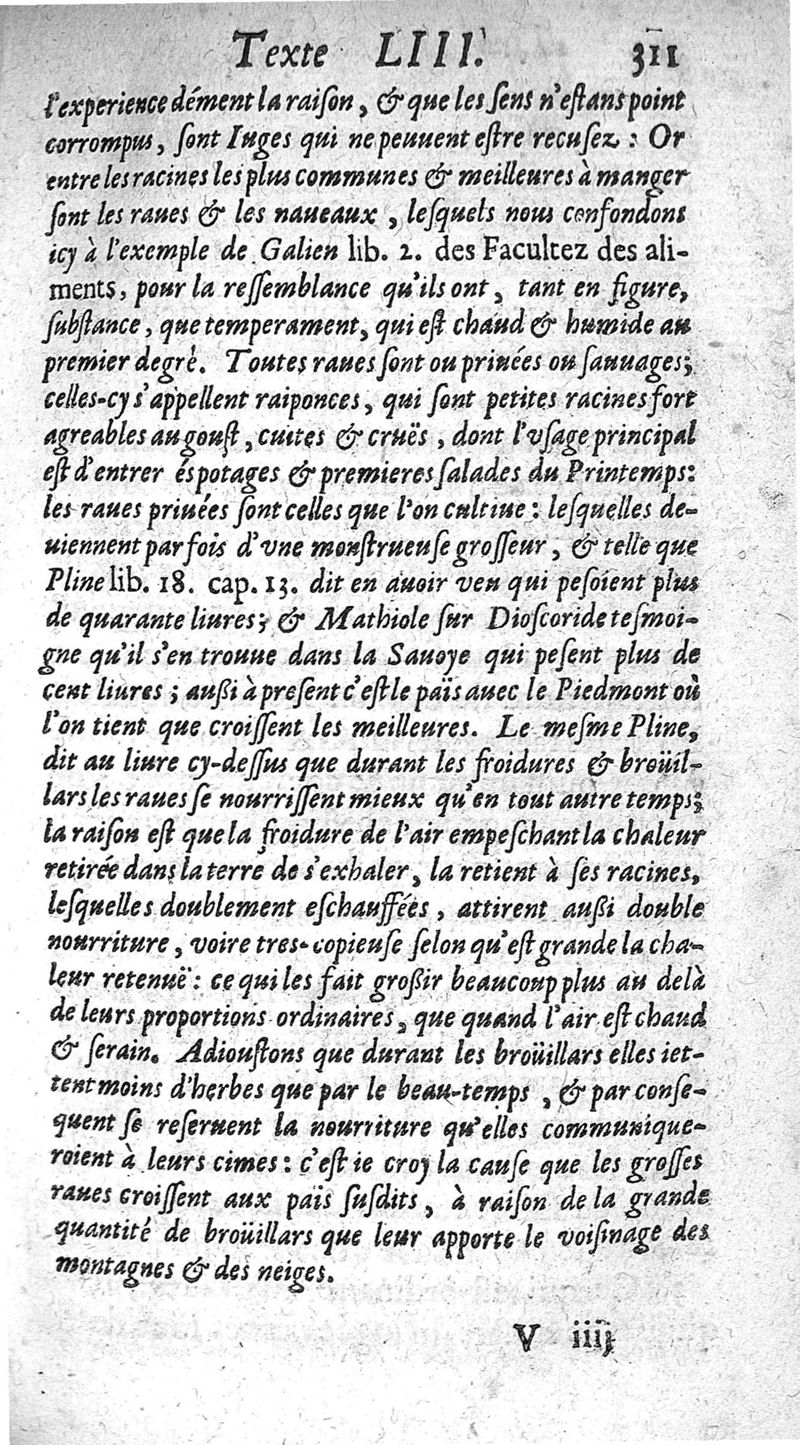 Texte LIII. 311
l'experience dément la raiſon, & que les ſens n'eſtans point
corrompus, ſont Iuges qui ne peuuent eſtre recuſez : Or
entre les racines les plus communes & meilleures à manger
ſont les raues & les naueaux, leſquels nous confondons
icy à l'exemple de Galien lib. 2. des Facultez des ali-
ments, pour la reſſemblance qu'ils ont, tant en figure,
ſubſtance, que temperament, qui eſt chaud & humide au
premier degrè. Toutes raues ſont ou priuées ou ſauuages;
celles-cy s'appellent raiponces, qui ſont petites racines fort
agreables au gouſt, cuites & cruës, dont l'vſage principal
eſt d'entrer éspotages & premieres ſalades du Printemps:
les raues priuées ſont celles que l'on cultiue : leſquelles de-
uiennent par fois d'vne monſtrueuſe groſſeur, & telle que
Pline lib. 18. cap. 13. dit en auoir veu qui peſoient plus
de quarante liures; & Mathiole ſur Dioſcoride teſmoi-
gne qu'il s'en trouue dans la Sauoye qui peſent plus de
cent liures ; außi à preſent c'eſt le païs auec le Piedmont où
l'on tient que croiſſent les meilleures. Le meſme Pline,
dit au liure cy-deſſus que durant les froidures & broüil-
lars les raues ſe nourriſſent mieux qu'en tout autre temps;
la raiſon eſt que la froidure de l'air empeſchant la chaleur
retirée dans la terre de s'exhaler, la retient à ſes racines,
leſquelles doublement eſchauffées, attirent außi double
nourriture, voire tres-copieuſe ſelon qu'eſt grande la cha-
leur retenuë : ce qui les fait großir beaucoup plus au delà
de leurs proportions ordinaires, que quand l'air eſt chaud
& ſerain. Adiouſtons que durant les broüillars elles iet-
tent moins d'herbes que par le beau-temps, & par conſe-
quent ſe reſeruent la nourriture qu'elles communique-
roient à leurs cimes : c'eſt ie croy la cauſe que les groſſes
raues croiſſent aux païs ſuſdits, à raiſon de la grande
quantité de broüillars que leur apporte le voiſinage des
montagnes & des neiges.
V iiij